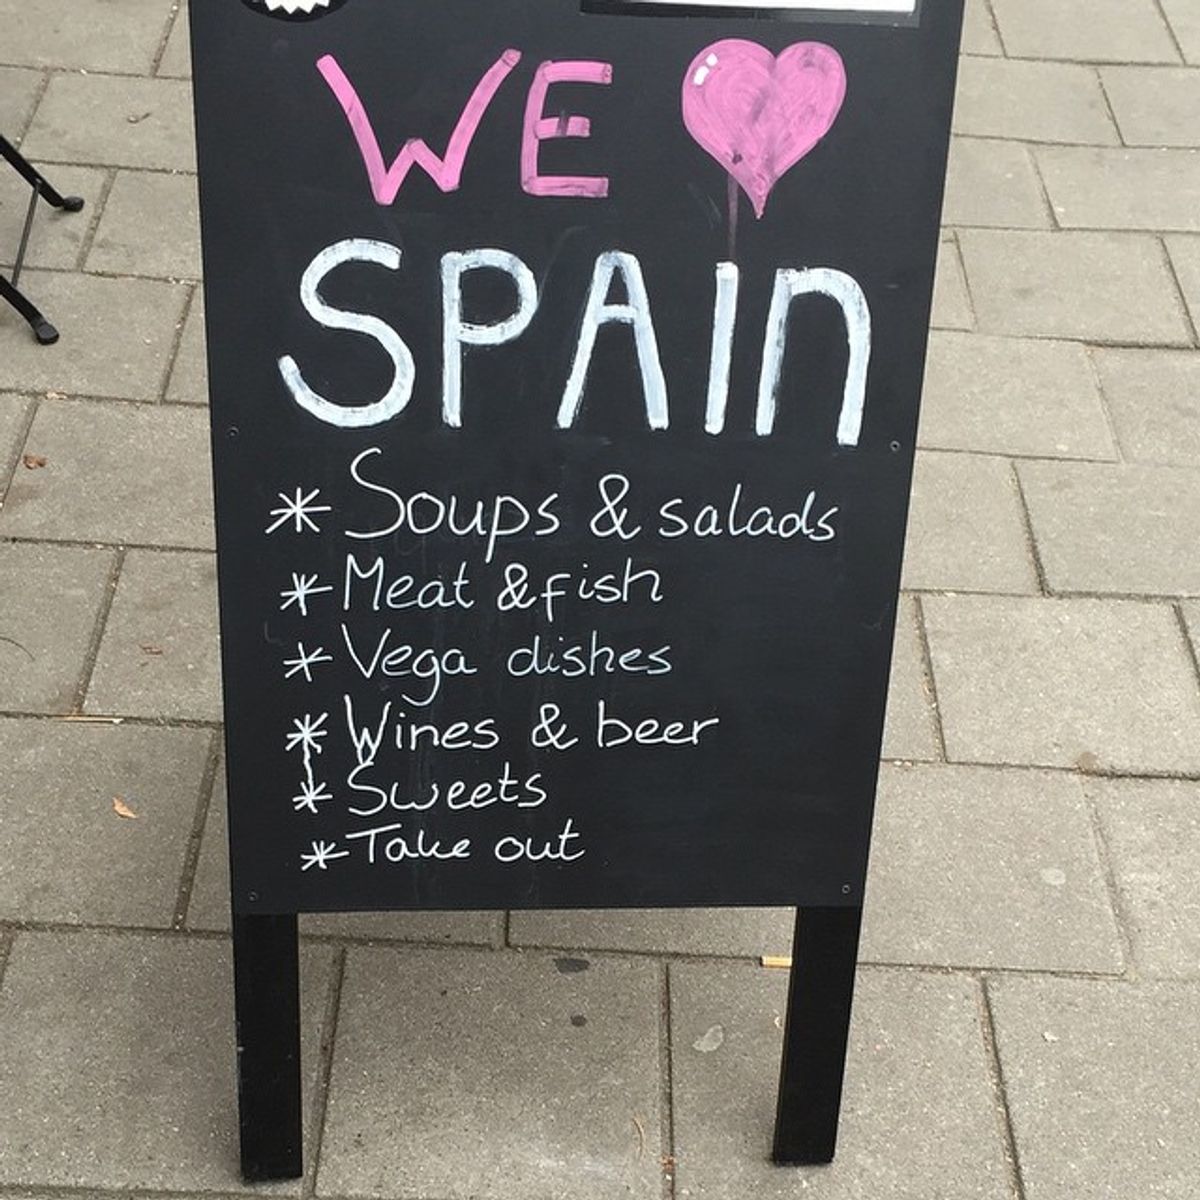 WE ♥
SPAIn
* Soups & salads
* Meat & fish
* Vega dishes
* Wines & beer
* Sweets
* Take out